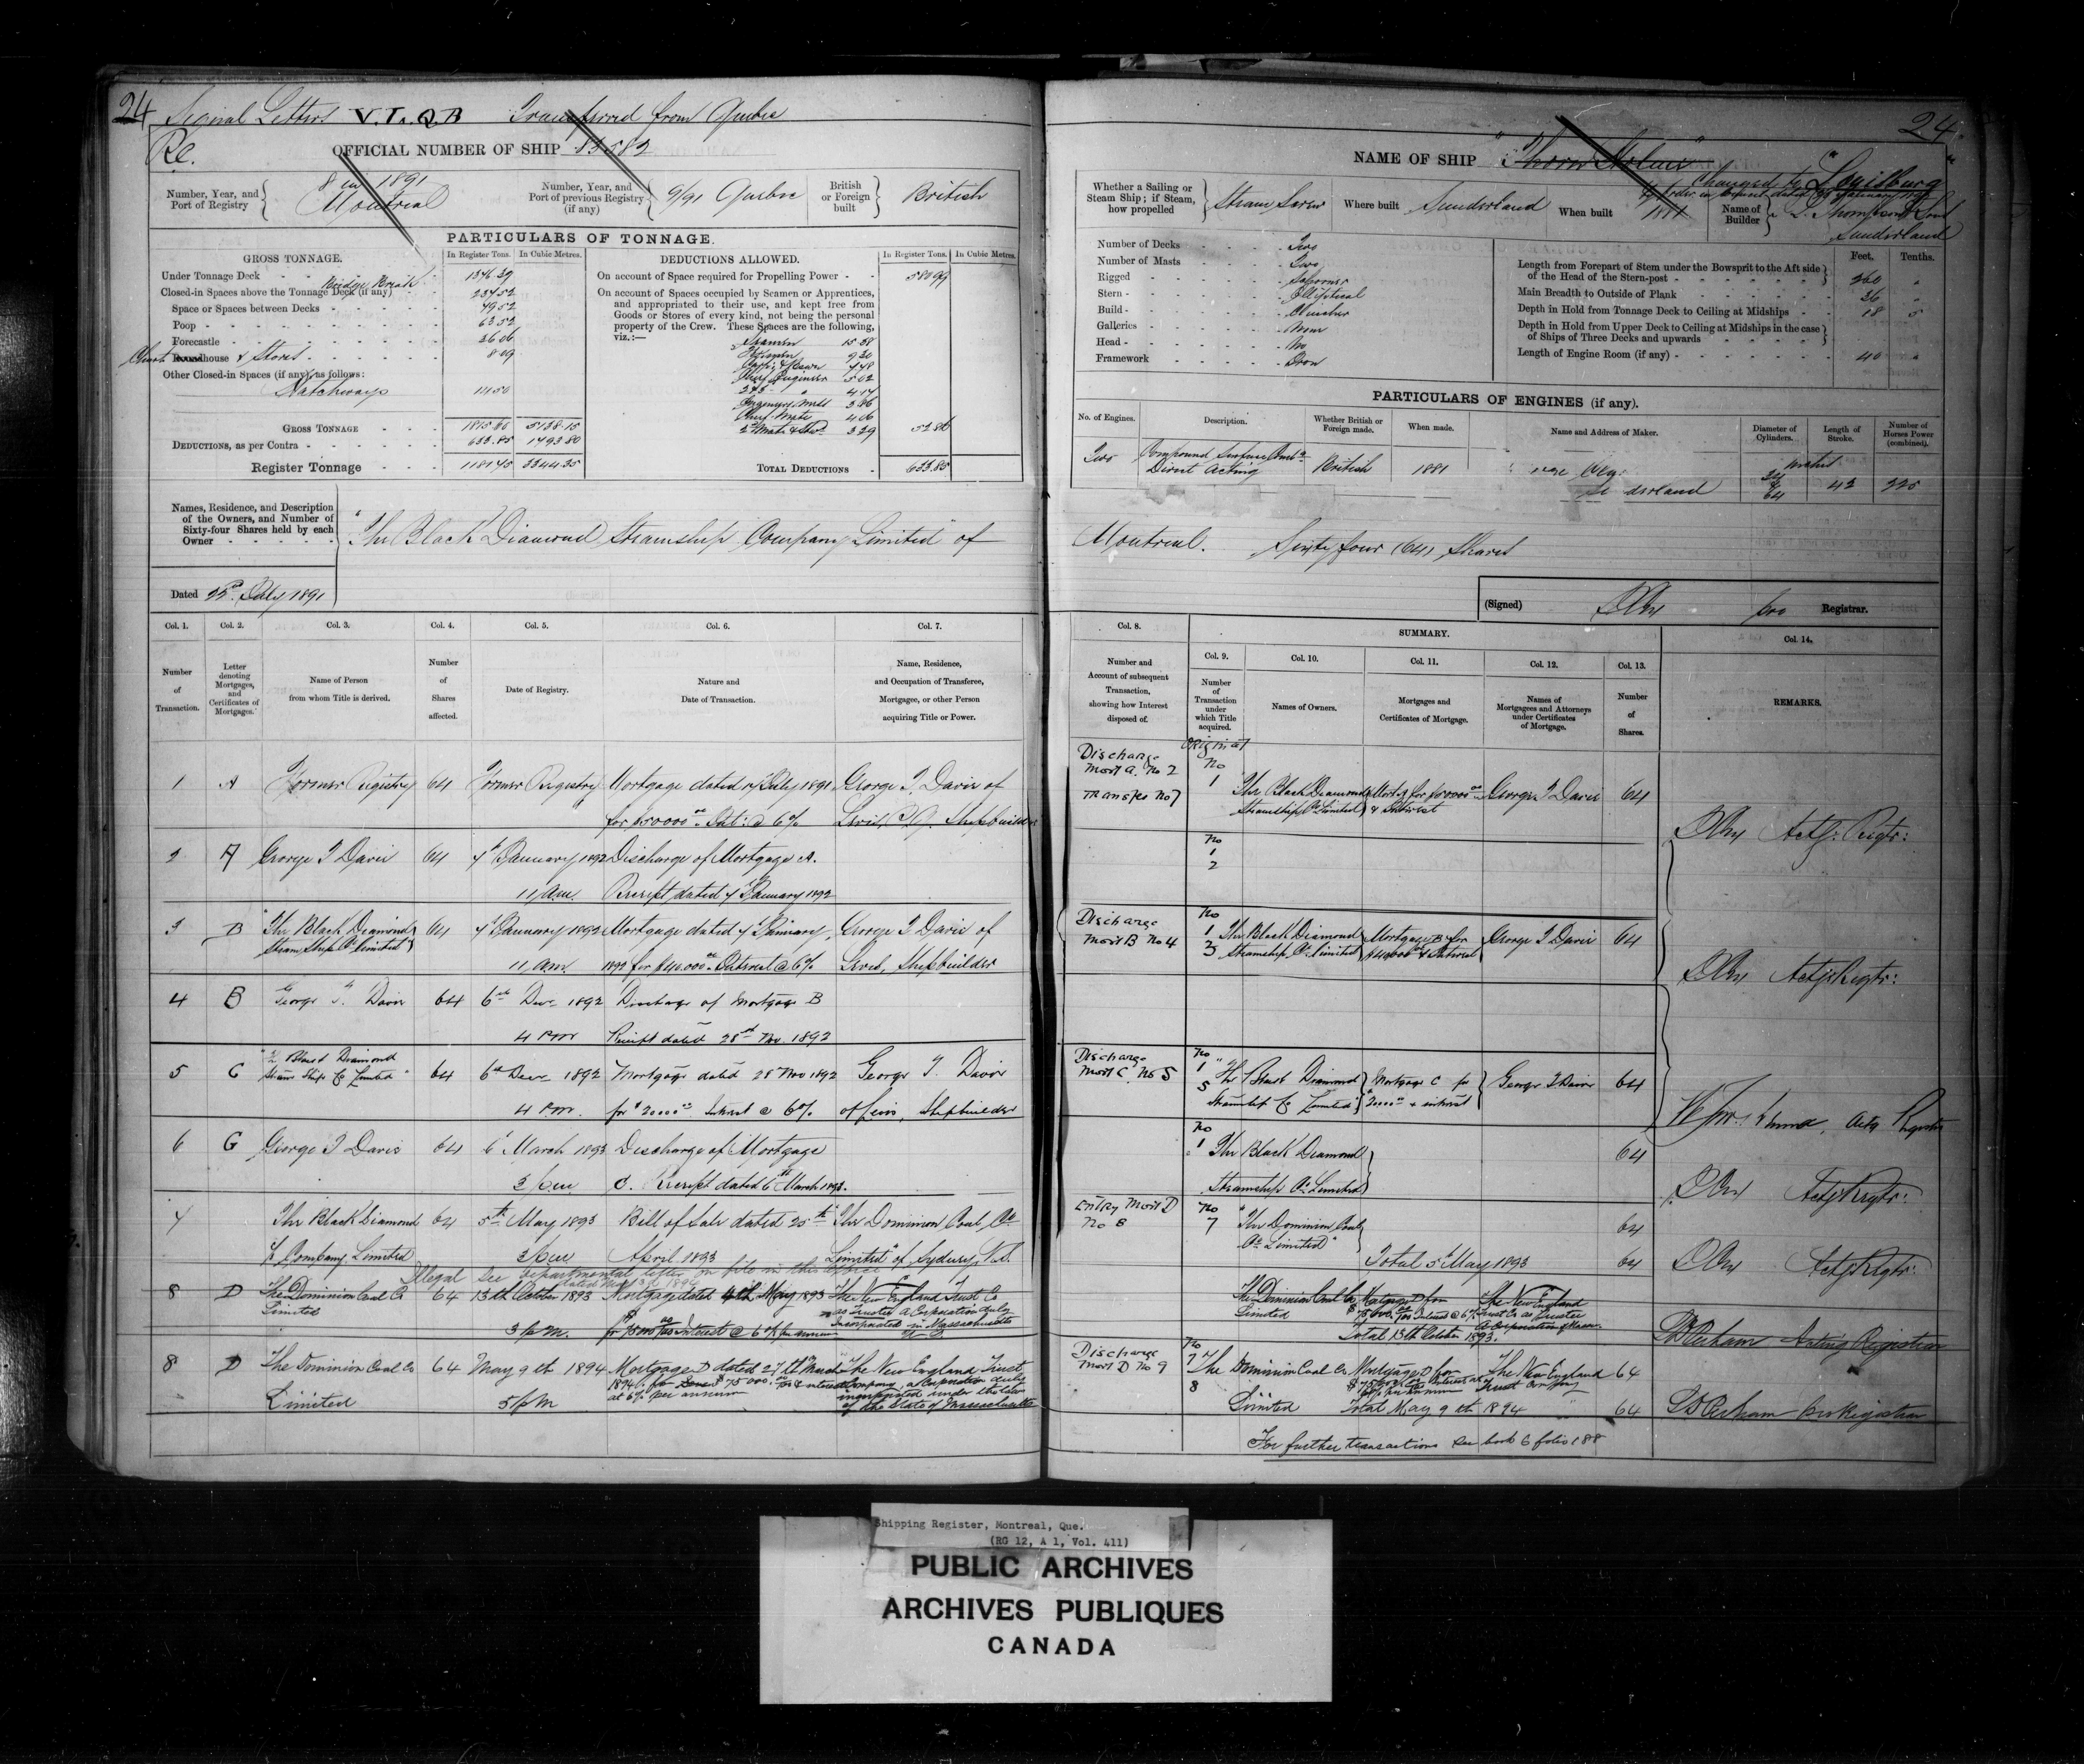 24 Signal Letters V.L.Q.B Transferred from Quebec
Re.
OFFICIAL NUMBER OF SHIP 83582
Number, Year, and Port of Registry 8 in 1891 Montreal
Number, Year, and Port of previous Registry (if any) 9/91 Quebec
British or Foreign built British
PARTICULARS OF TONNAGE.
GROSS TONNAGE. In Register Tons. In Cubic Metres.
Under Tonnage Deck 1346.39
Bridge Break
Closed-in Spaces above the Tonnage Deck (if any) 234.52
Space or Spaces between Decks 49.52
Poop 63.52
Forecastle 36.06
Chart Roundhouse & Stores 8.09
Other Closed-in Spaces (if any), as follows:
Hatchways 14.50
GROSS TONNAGE 5138.15
DEDUCTIONS, as per Contra 633.85
Register Tonnage 3344.35
DEDUCTIONS ALLOWED. In Register Tons. In Cubic Metres.
On account of Space required for Propelling Power 580.99
On account of Spaces occupied by Seamen or Apprentices,
and appropriated to their use, and kept free from
Goods or Stores of every kind, not being the personal
property of the Crew. These Spaces are the following,
viz.:—
Seamen 15.58
Firemen 9.30
Chief Engineer 5.02
2 & 3 " 4.14
Engineers Mess 3.86
Chief Mate 4.06
2nd Mate & Stewd 3.29 52.86
TOTAL DEDUCTIONS 633.85
Names, Residence, and Description
of the Owners, and Number of
Sixty-four Shares held by each
Owner
"The Black Diamond Steamship Company Limited" of
Dated 22nd July 1891
Col. 1. Col. 2. Col. 3. Col. 4. Col. 5. Col. 6. Col. 7.
Number of Transaction.
Letter denoting Mortgages, and Certificates of Mortgages.
Name of Person from whom Title is derived.
Number of Shares affected.
Date of Registry.
Nature and Date of Transaction.
Name, Residence, and Occupation of Transferee, Mortgagee, or other Person acquiring Title or Power.
1 A Former Registry 64 Former Registry Mortgage dated July 1891 George T Davie of
for $50000.00 Int: @ 6% Levis, P.Q. Shipbuilder
2 A George T Davie 64 7th January 1892 Discharge of Mortgage A.
11 a.m. Receipt dated 7th January 1892
3 B "The Black Diamond 64 7th January 1892 Mortgage dated 7th January, George T Davie of
Steam Ship Co limited"
11 a.m. 1892 for $40.000.00 Interest @ 6% Levis, Shipbuilder
4 B George T. Davie 64 6th Dec 1892 Discharge of Mortgage B
4 PM Receipt dated 28th Nov. 1892
5 C "The Black Diamond 64 6th Dec 1892 Mortgage dated 28 Nov 1892 George T. Davie
Steam Ship Co Limited"
4 P.M. for $20000.00 Interest @ 6% of Levis, Shipbuilder
6 C George T Davie 64 6th March 1893 Discharge of Mortgage
3 p.m. C. Receipt dated 6th March 1893.
7 The Black Diamond 64 5th May 1893 Bill of Sale dated 25th "The Dominion Coal Co
Company Limited 3 p.m. April 1893 Limited" of Sydney
Illegal see Departmental letter on file in this office
dated
8 D The Dominion Coal Co 64 13th October 1893 Mortgage dated 4th May 1893 The New England Trust Co
Limited as Trustee A Corporation duly
Incorporated in Massachusetts
3 p.m. for $75000.00 Interest @ 6% per annum
8 D The Dominion Coal Co 64 May 9th 1894 Mortgage D dated 27th March "The New England Trust
1894 for $75000.00 & interest Company, a Corporation duly
at 6% per annum incorporated under the laws
Limited 5 p.m of the State of Massachusetts
24
NAME OF SHIP
Changed to "Louisburg"
Whether a Sailing or Steam Ship; if Steam, how propelled Steam Screw
Where built Sunderland
When built 1881
Name of Builder Thompson
Sunderland
Number of Decks Two
Number of Masts Two
Rigged Schooner
Stern Elliptical
Build Clincher
Galleries None
Head No
Framework Iron
Feet. Tenths.
Length from Forepart of Stem under the Bowsprit to the Aft side
of the Head of the Stern-post 260 "
Main Breadth to Outside of Plank 36 "
Depth in Hold from Tonnage Deck to Ceiling at Midships 18 5
Depth in Hold from Upper Deck to Ceiling at Midships in the case
of Ships of Three Decks and upwards
Length of Engine Room (if any) 40 "
PARTICULARS OF ENGINES (if any).
No. of Engines. Description. Whether British or Foreign made. When made. Name and Address of Maker. Diameter of Cylinders. Length of Stroke. Number of Horses Power (combined).
Two Compound Surface Cond.
Direct Acting British 1881 42 225
64
Montreal. Sixty four (64) Shares
(Signed) Registrar.
Col. 8. SUMMARY. Col. 14.
Col. 9. Col. 10. Col. 11. Col. 12. Col. 13.
Number and Account of subsequent Transaction, showing how Interest disposed of.
Number of Transaction under which Title acquired.
Names of Owners.
Mortgages and Certificates of Mortgage.
Names of Mortgagees and Attorneys under Certificates of Mortgage.
Number of Shares.
REMARKS.
Discharge Original
Mort A. No 2 No
1 The Black Diamond Mort A for $50000.00 George T Davie 64
Transfer No 7 Steamship Co Limited & Interest
Actg: Regtr:
No
1
2
Discharge No
Mort B No 4 1 The Black Diamond Mortgage B for George T Davie 64
3 Steamship Co limited $40000 & Interest
Actg Regtr:
Discharge No
Mort C. No 5 1 "The Black Diamond Mortgage C for George T Davie 64
5 Steamship Co Limited" $20000.00 & interest
Actg Registrar
No
1 The Black Diamond 64
Steamship Co Limited
Actg Regtr:
Entry Mort D No
No 8 7 "The Dominion Coal 64
Co Limited"
Total 5th May 1893 64 Actg Regtr:
The Dominion Coal Co Mortgage D for The New England
Limited $75.000.00 Interest @ 6% Trust Co as Trustee
A Corporation of Mass.
Total 13th October 1893.
Acting Registrar
Discharge No
Mort D No 9 7 The Dominion Coal Co Mortgage D for The New England 64
8 Trust Company
Limited Total May 9th 1894 " 64
For further transactions see book 6 folio 188
Shipping Register, Montreal, Que.
(RG 12, A 1, Vol. 411)
PUBLIC ARCHIVES
ARCHIVES PUBLIQUES
CANADA